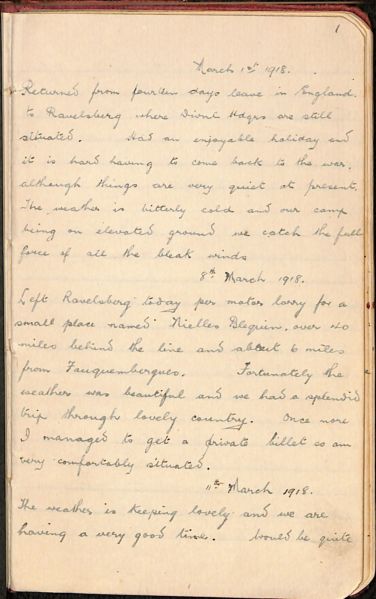 1
March 1st 1918.
Returned from fourteen days leave in England.
to Ravelsberg where Divnl Hdqrs are still
situated. Had an enjoyable holiday and
it is hard having to come back to the war,
although things are very quiet at present.
The weather is bitterly cold and our camp
being on elevated ground we catch the full
force of all the bleak winds
8th March 1918.
Left Ravelsberg today per motor lorry for a
small place named Nielles Blequin. over 40
miles behind the line and about 6 miles
from Fauquembergues. Fortunately the
weather was beautiful and we had a splendid
trip through lovely country. Once more
I managed to get a private billet so am
very comfortably situated.
11th March 1918.
The weather is keeping lovely and we are
having a very good time. Would be quite